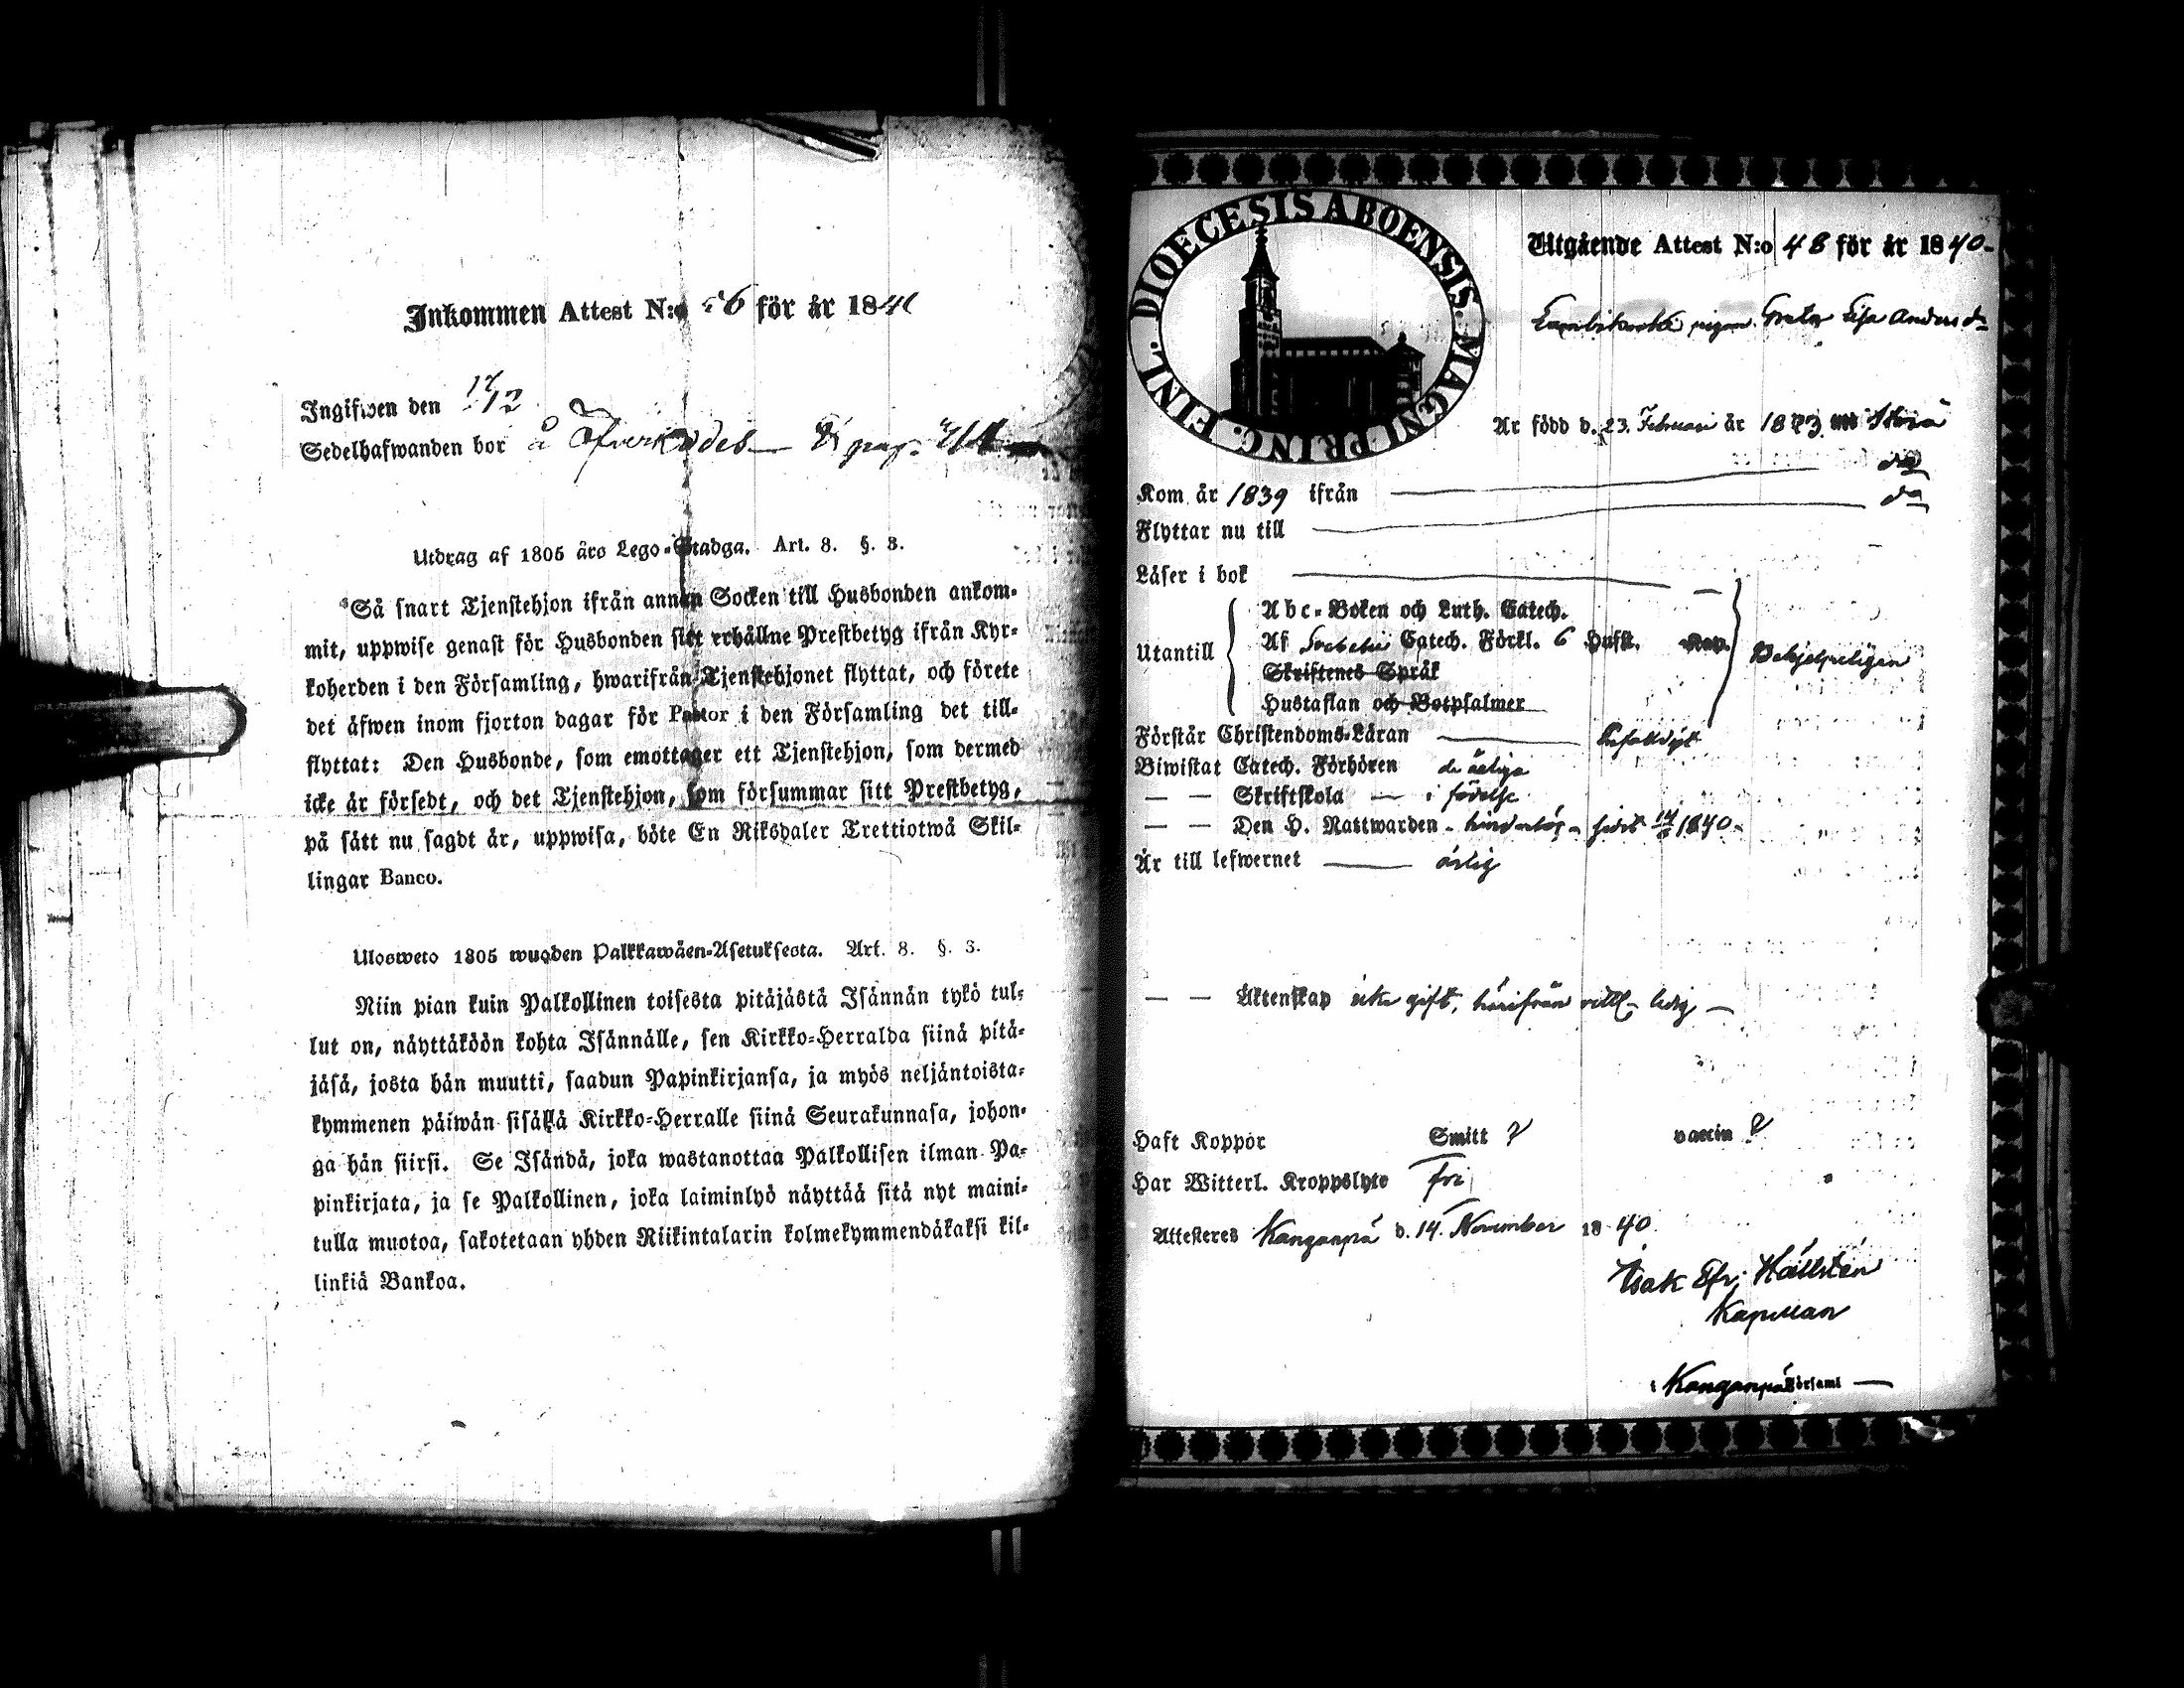 Inkommen Attest N:o 56 för år 1840
Ingifwen den 17/12
Sedelhafwanden bor å
Utdrag af 1805 års Lego-Stadga. Art. 8. §. 3.
"Så snart Tjenstehjon ifrån annan Socken till Husbonden ankom-
mit, uppwise genast för Husbonden sitt erhållne Prestbetyg ifrån Kyr-
koherden i den Församling, hwarifrån Tjenstehjonet flyttat, och förete
det äfwen inom fjorton dagar för Pastor i den Församling det till-
flyttat: Den Husbonde, som emottager ett Tjenstehjon, som dermed
icke är försedt, och det Tjenstehjon, som försummar sitt Prestbetyg,
på sätt nu sagdt är, uppwisa, böte En Riksdaler Trettiotwå Skil-
lingar Banco.
Ulosweto 1805 wuoden Palkkawäen-Asetuksesta. Art. 8. §. 3.
Niin pian kuin Palkollinen toisesta pitäjästä Isännän tykö tul-
lut on, näyttäköön kohta Isännälle, sen Kirkko-Herralda siinä pitä-
jäsä, josta hän muutti, saadun Papinkirjansa, ja myös neljäntoista-
kymmenen päiwän sisällä Kirkko-Herralle siinä Seurakunnasa, johon-
ga hän siirsi. Se Isändä, joka wastanottaa Palkollisen ilman Pa-
pinkirjata, ja se Palkollinen, joka laiminlyö näyttää sitä nyt maini-
tulla muotoa, sakotetaan yhden Riikintalarin kolmekymmendäkaksi kil-
linkiä Bankoa.
DIOECESIS ABOENSIS. MAGNI PRINC. FINL.
Utgående Attest N:o 48 för år 1840-
pigan Greta Lisa Andersdr
Är född d. 23. Februari år 1823 i Storå
Kom år 1839 ifrån do
Flyttar nu till do
Läser i bok
Utantill
Abc-Boken och Luth. Catech.
Af Svebelii Catech. Förkl. 6 Hufst. Rep.
Skriftenes Språk
Hustaflan och Botpsalmer
Behjelpeligen
Förstår Christendoms-Läran Enfaldigt
Biwistat Catech. Förhören de årliga
— — Skriftskola — i
— — Den H. Nattwarden - hinderlös - sidst 1840-
Är till lefwernet ärlig
— — Äktenskap icke gift, härifrån ledig
Haft Koppor Smitt ? vaccin ?
Har Witterl. Kroppslyte fri
Attesteres Kanganpä d. 14. November 1840.
Isak Efr. Hällstén
Kapellan
i Kanganpä Församl